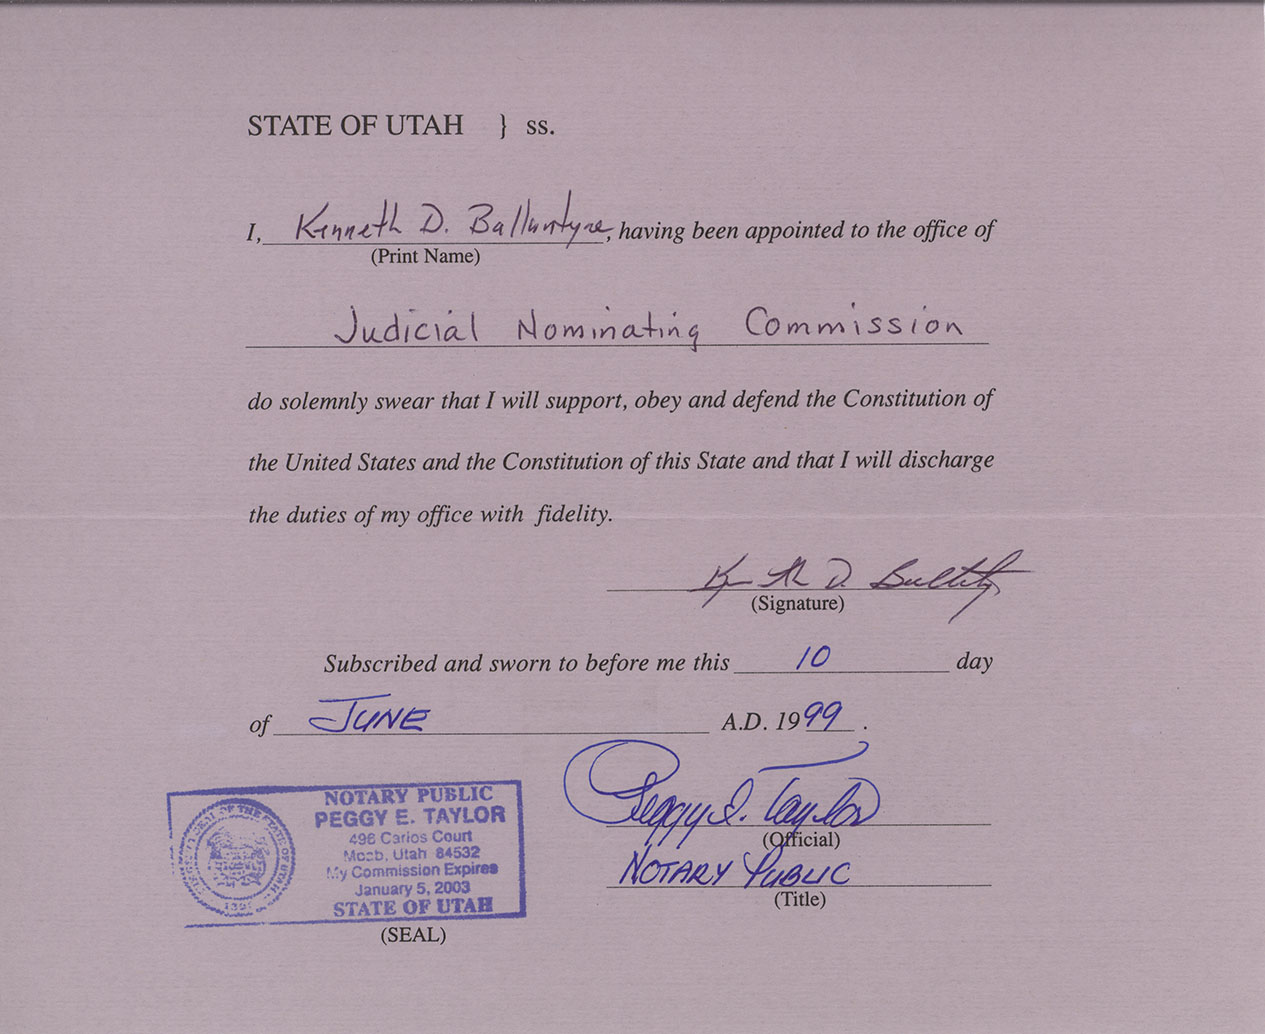 STATE OF UTAH } ss.
I, Kenneth D. Ballantyne, having been appointed to the office of
(Print Name)
Judicial Nominating Commission
do solemnly swear that I will support, obey and defend the Constitution of
the United States and the Constitution of this State and that I will discharge
the duties of my office with fidelity.
Kenneth D. Ballantyne
(Signature)
Subscribed and sworn to before me this 10 day
of JUNE A.D. 1999.
Peggy E. Taylor
(Official)
NOTARY PUBLIC
(Title)
NOTARY PUBLIC
PEGGY E. TAYLOR
496 Carlos Court
Moab, Utah 84532
My Commission Expires
January 5, 2003
STATE OF UTAH
(SEAL)